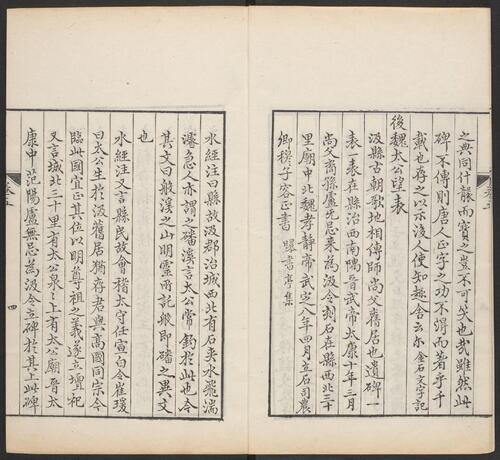 之典同什襲而寶之豈不可笑也哉雖然此
碑不傳則唐人正字之功不得而著乎千
載也存之以示後人使知趨舍云尔 金石文字記
後魏太公望表
汲縣古朝歌地相傳師尚父舊居也遺碑一
表一表在縣治西南隅晉武帝太康十年三月
尚父裔孫盧无忌来為汲令刻石在縣西北三十
里廟中北魏孝靜帝武定八年四月立石司農
卿穆子容正書 曝書亭集
水經注曰縣故汲郡治城西北有石夹水飛湍
濬急人亦謂之磻溪言太公常釣扵此也今
其文曰般溪之山明靈所託般即磻之異文
也
水經注又言縣民故會稽太守任宣白令崔瑗
曰太公生扵汲舊居猶存君與高國同宗今
臨此國宜正其位以明尊祖之義遂立壇祀
又言城北三十里有太公泉泉上有太公廟晉太
康中范陽盧無忌為汲令立碑扵其上此碑
四